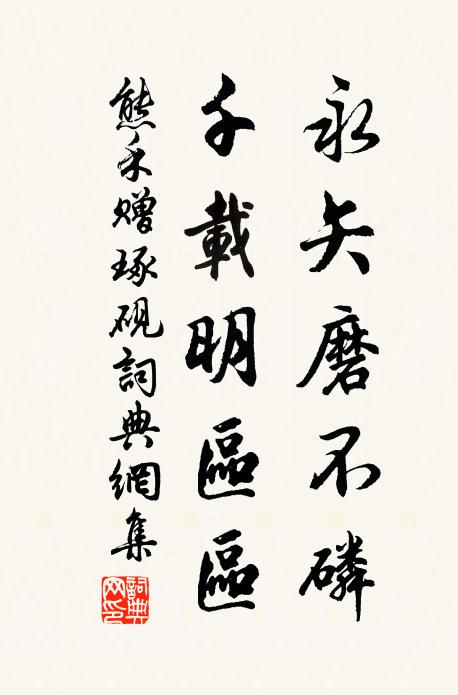 永矢磨不磷
千載明區區
熊禾贈琢硯詞典網集
詞典網印